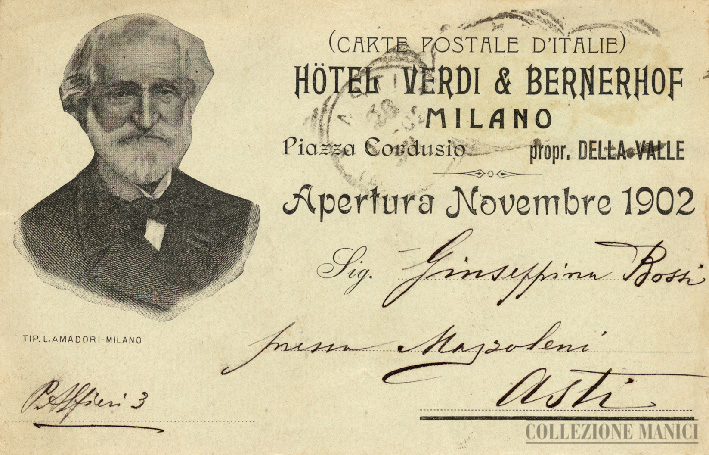 (CARTE POSTALE D'ITALIE)
HÔTEL VERDI & BERNERHOF
MILANO
Piazza Cordusio propr. DELLA-VALLE
Apertura Novembre 1902
Sig. Giuseppina Rossi
presso Mazzoleni
Asti
TIP. L. AMADORI - MILANO
P. Alfieri 3
COLLEZIONE MANICI